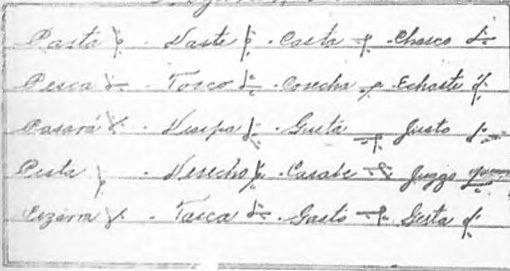 Pasta . Vaste . Casta . Chasco
Pesca . Tosco . Cosecha . Echaste
Pasará . Gusta Justo
Pesta . Desecho . Casabe . Juzgo
. Tasca . Gasto . Gesta